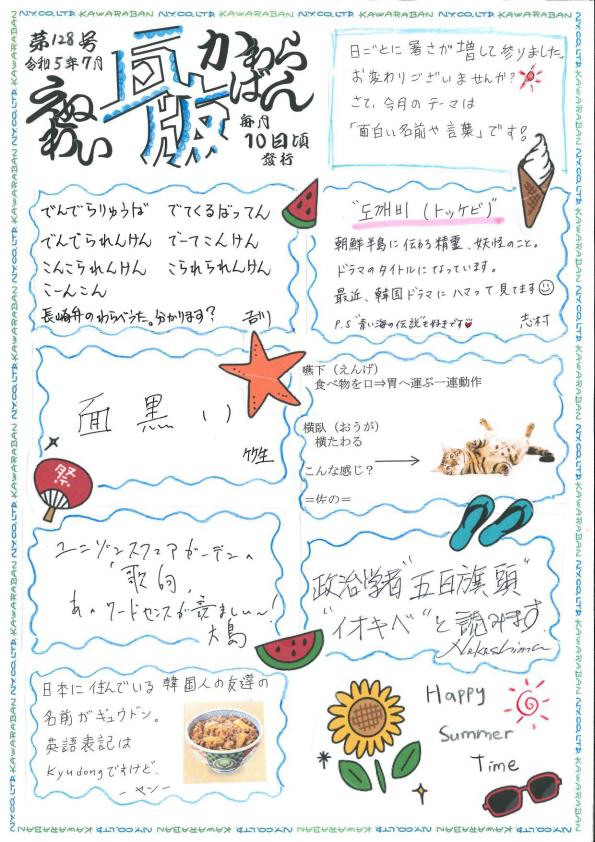 第128号
令和5年7月
えぬわい
瓦版
かわらばん
毎月
10日頃
発行
日ごとに暑さが増して参りました。
お変わりございませんか?
さて、今月のテーマは
「面白い名前や言葉」です!
でんでらりゅうば でてくるばってん
でんでられんけん でーてこんけん
こんこられんけん こられられんけん
こーんこん
長崎弁のわらべうた。分かります? 吉川
"도깨비(トッケビ)"
朝鮮半島に伝わる精霊、妖怪のこと。
ドラマのタイトルになっています。
最近、韓国ドラマにハマって見てます
P.S "青い海の伝説"も好きです 志村
面黒い
竹生
嚥下(えんげ)
食べ物を口⇒胃へ運ぶ一連動作
横臥(おうが)
横たわる
こんな感じ?
=佐の=
祭
ユニゾンスクエアガーデンの
「歌詞」
あのワードセンスが羨ましい〜!
大島
政治学者"五百旗頭"
"イオキベ"と読みます
Nakashima
日本に住んでいる韓国人の友達の
名前がギュウドン。
英語表記は
Kyudongですけど…
ーヤンー
Happy
Summer
Time
N.Y.CO.,LTD. KAWARABAN